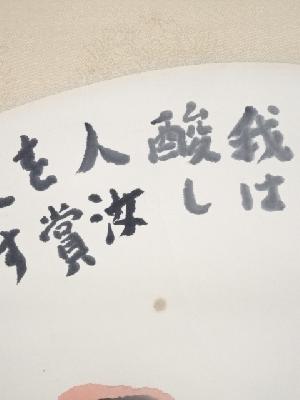 我は
酸し
人汝
を賞